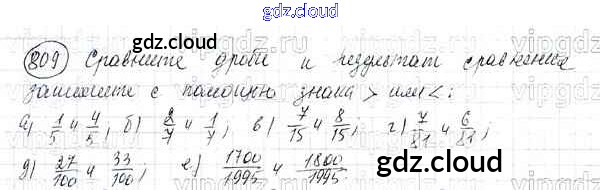 gdz.cloud
gdz.cloud
809 Сравните дроби и результат сравнения
запишите с помощью знака > или <:
а) 1/5 и 4/5; б) 8/7 и 1/7; в) 7/15 и 8/15; г) 7/81 и 6/81;
д) 27/100 и 33/100; е) 1700/1995 и 1800/1995.
gdz.cloud
gdz.cloud